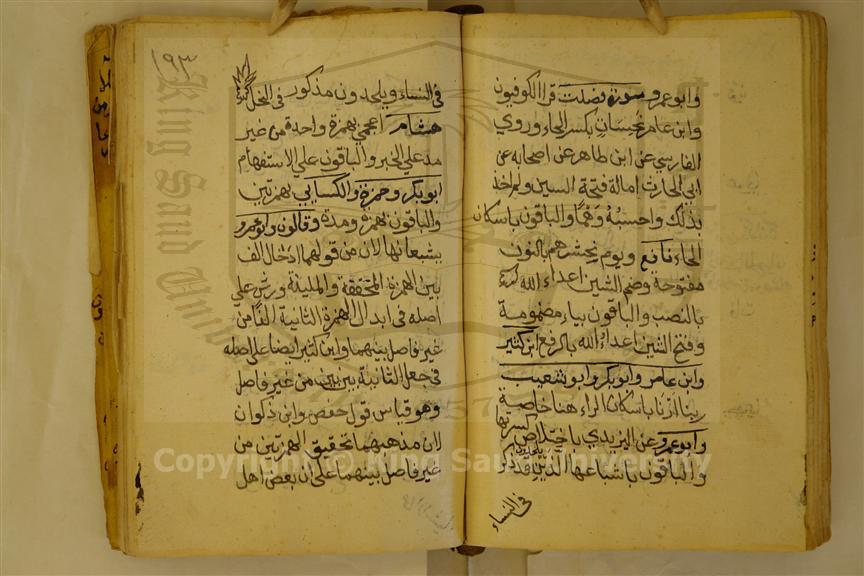 وابو عمرو سورة فصلت قرا الكوفيون
وابن عامر نحسات بكسر الحاء وروي
الفارسي عن ابي طاهر عن اصحابه عن
ابي الحارث امالة فتحة السين ولم اخذ
بذلك واحسبه وهما والباقون باسكان
الحاء نافع ويوم نحشر هم بالنون
مفتوحة وضم الشين اعداء الله
بالنصب والباقون بياء مضمومة
وفتح الشين اعداء الله بالرفع ابن كثير
وابن عامر وابو بكر وابو شعيب
ربنا ارنا باسكان الراء هنا خاصة
وابو عمرو عن اليزيدي باختلاس كسرتها
والباقون باشباعها الذين قد ذكر
يلحدون
في النساء
١٩٣
في النساء ويلحدون مذكور في النحل
هشام اعجمي بهمزة واحدة من غير
مد علي الخبر والباقون علي الاستفهام
ابو بكر وحمزة والكسايي بهمزتين
والباقون بهمزة ومدة وقالون وابو عمرو
يشبعانها لان من قولهما ادخال الف
بين الهمزة المحققة والملينة وورش علي
اصله في ابدال الهمزة الثانية الفا من
غير فاصل بينهما وابن كثير ايضا علي اصله
في جعل الثانية بين بين من غير فاصل
وهو قياس قول حفص وابن ذكوان
لان مذهبهما تحقيق الهمزتين من
غير فاصل بينهما علي ان بعض اهل
King Saud University
1957
Copyright © King Saud University